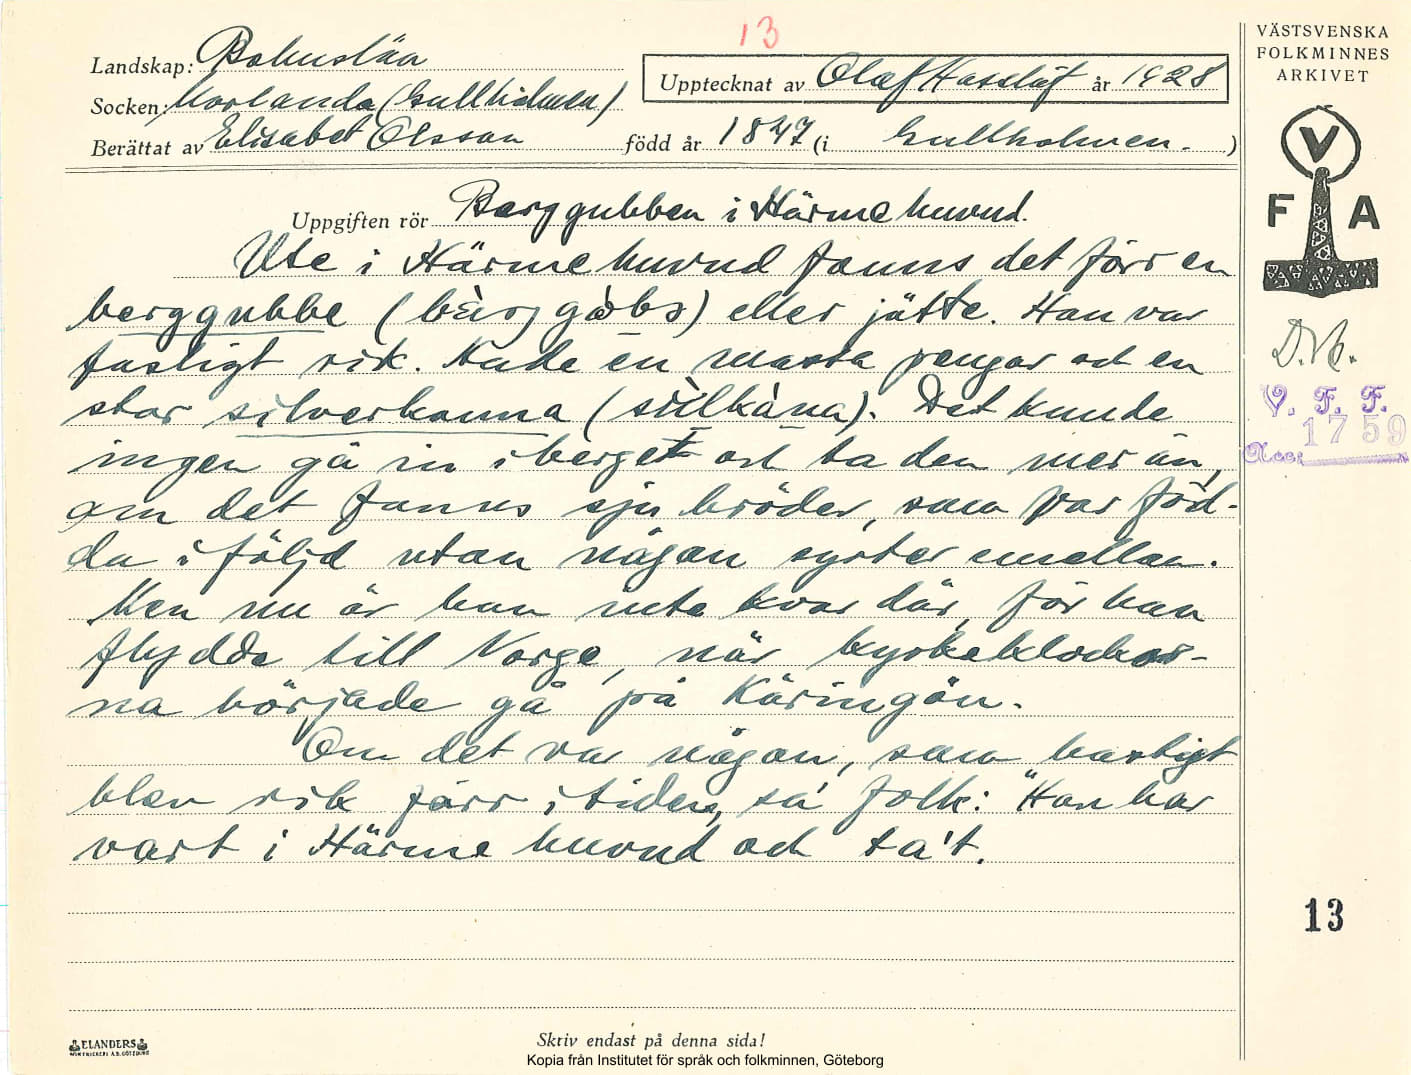 13
Landskap: Bohuslän
Upptecknat av Olof Hasslöf år 1928
Socken: Morlanda (Gullholmen)
Berättat av Elisabet Olsson född år 1847 (i Gullholmen. )
Uppgiften rör Berggubben i Härmehuvud.
Ute i Härmehuvud fanns det förr en
berggubbe ( ) eller jätte. Han var
fasligt rik. Hade en massa pengar och en
stor silverkanna ( ). Det kunde
ingen gå in i berget och ta den mer än,
om det fanns sju bröder, som var föd-
da i följd utan någon syster emellan.
Men nu är han inte kvar där, för han
flydde till Norge, när kyrkeklockor-
na började gå på Käringön.
Om det var någon, som hastigt
blev rik förr i tiden, sa' folk: "Han har
vart i Härmehuvud och ta't.
VÄSTSVENSKA
FOLKMINNES
ARKIVET
V
F A
V. F. F.
1759
Acc:
13
ELANDERS
Skriv endast på denna sida!
Kopia från Institutet för språk och folkminnen, Göteborg